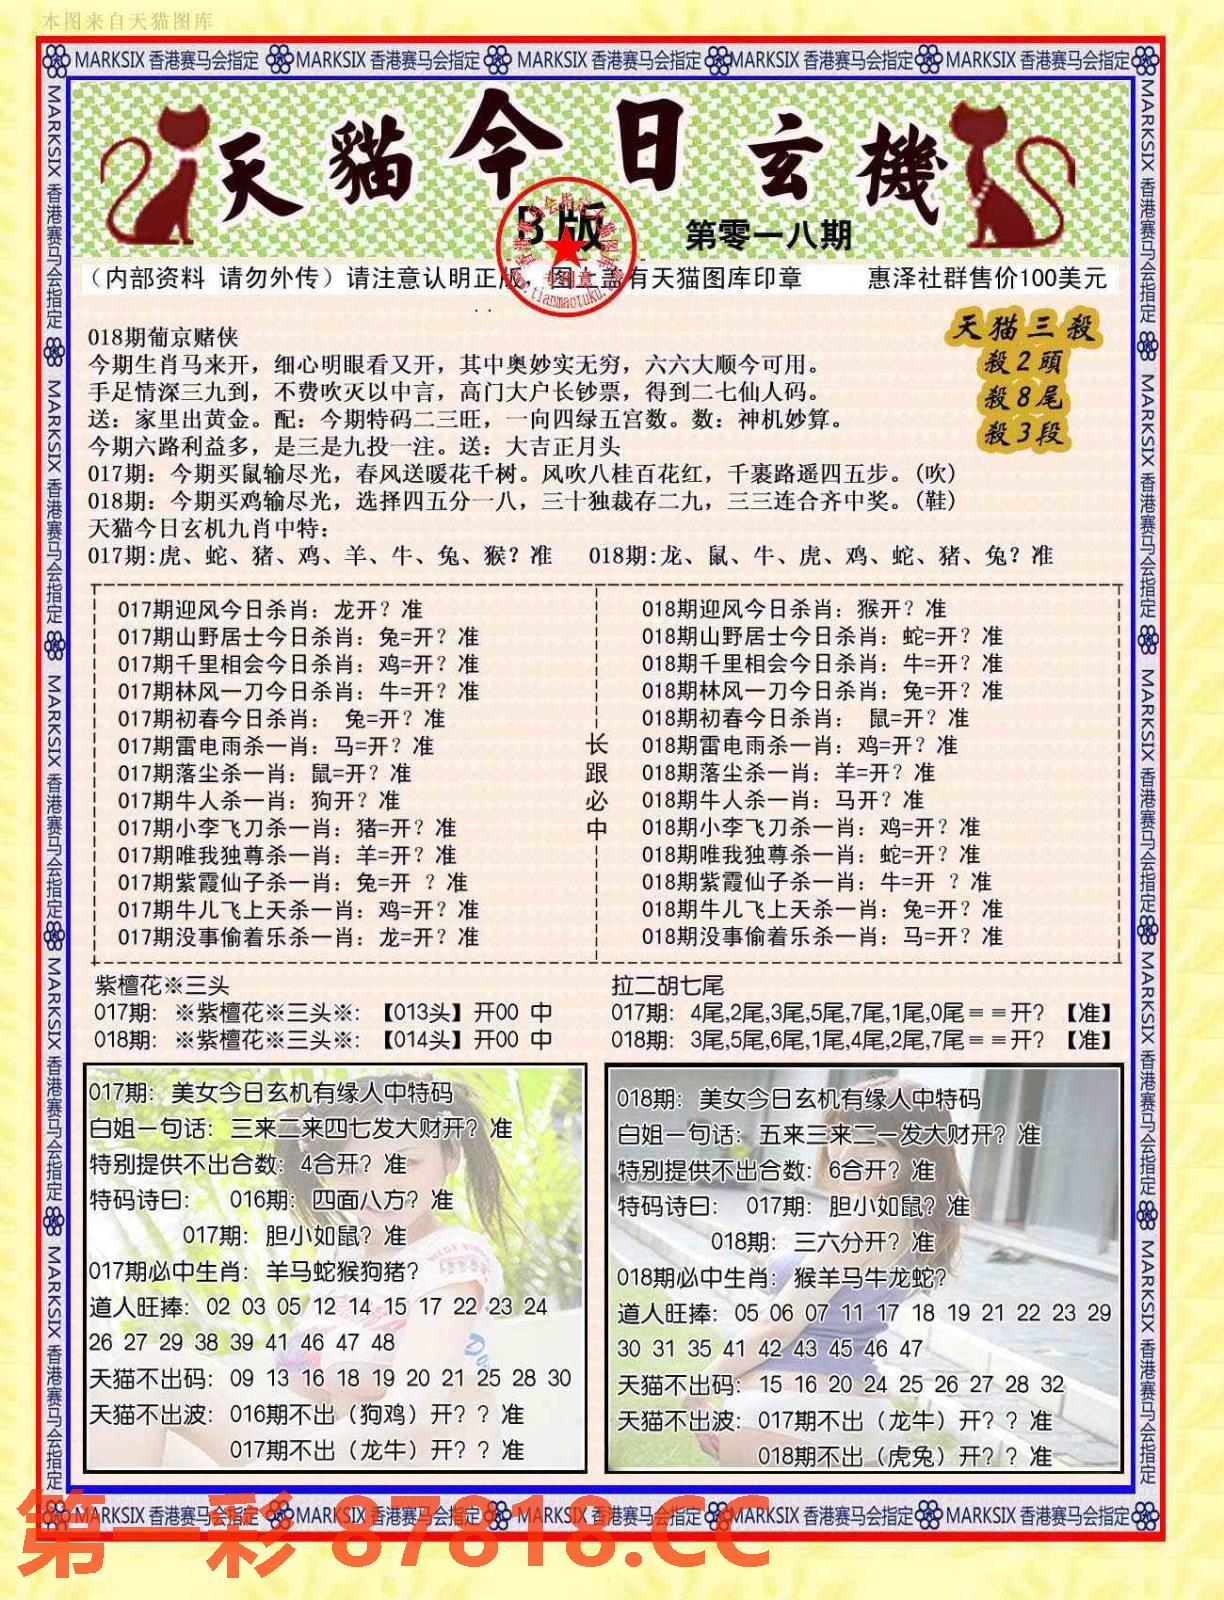 本图来自天猫图库
MARKSIX 香港赛马会指定 MARKSIX 香港赛马会指定 MARKSIX 香港赛马会指定 MARKSIX 香港赛马会指定 MARKSIX 香港赛马会指定
天貓今日玄機
B版
第零一八期
（内部资料 请勿外传）请注意认明正版 图上盖有天猫图库印章 惠泽社群售价100美元
天猫三殺
殺2頭
殺8尾
殺3段
018期葡京赌侠
今期生肖马来开，细心明眼看又开，其中奥妙实无穷，六六大顺今可用。
手足情深三九到，不费吹灭以中言，高门大户长钞票，得到二七仙人码。
送：家里出黄金。配：今期特码二三旺，一向四绿五宫数。数：神机妙算。
今期六路利益多，是三是九投一注。送：大吉正月头
017期：今期买鼠输尽光，春风送暖花千树。风吹八桂百花红，千裹路遥四五步。（吹）
018期：今期买鸡输尽光，选择四五分一八，三十独裁存二九，三三连合齐中奖。（鞋）
天猫今日玄机九肖中特：
017期:虎、蛇、猪、鸡、羊、牛、兔、猴？准 018期:龙、鼠、牛、虎、鸡、蛇、猪、兔？准
017期迎风今日杀肖：龙开？准
017期山野居士今日杀肖：兔=开？准
017期千里相会今日杀肖：鸡=开？准
017期林风一刀今日杀肖：牛=开？准
017期初春今日杀肖： 兔=开？准
017期雷电雨杀一肖：马=开？准
017期落尘杀一肖：鼠=开？准
017期牛人杀一肖：狗开？准
017期小李飞刀杀一肖：猪=开？准
017期唯我独尊杀一肖：羊=开？准
017期紫霞仙子杀一肖：兔=开 ？准
017期牛儿飞上天杀一肖：鸡=开？准
017期没事偷着乐杀一肖：龙=开？准
长跟必中
018期迎风今日杀肖：猴开？准
018期山野居士今日杀肖：蛇=开？准
018期千里相会今日杀肖：牛=开？准
018期林风一刀今日杀肖：兔=开？准
018期初春今日杀肖： 鼠=开？准
018期雷电雨杀一肖：鸡=开？准
018期落尘杀一肖：羊=开？准
018期牛人杀一肖：马开？准
018期小李飞刀杀一肖：鸡=开？准
018期唯我独尊杀一肖：蛇=开？准
018期紫霞仙子杀一肖：牛=开 ？准
018期牛儿飞上天杀一肖：兔=开？准
018期没事偷着乐杀一肖：马=开？准
紫檀花※三头
017期：※紫檀花※三头※：【013头】开00 中
018期：※紫檀花※三头※：【014头】开00 中
拉二胡七尾
017期：4尾,2尾,3尾,5尾,7尾,1尾,0尾＝＝开？【准】
018期：3尾,5尾,6尾,1尾,4尾,2尾,7尾＝＝开？【准】
017期：美女今日玄机有缘人中特码
白姐一句话：三来二来四七发大财开？准
特别提供不出合数：4合开？准
特码诗曰： 016期：四面八方？准
017期：胆小如鼠？准
017期必中生肖：羊马蛇猴狗猪？
道人旺捧：02 03 05 12 14 15 17 22 23 24
26 27 29 38 39 41 46 47 48
天猫不出码：09 13 16 18 19 20 21 25 28 30
天猫不出波：016期不出（狗鸡）开？？准
017期不出（龙牛）开？？准
018期：美女今日玄机有缘人中特码
白姐一句话：五来三来二一发大财开？准
特别提供不出合数：6合开？准
特码诗曰： 017期：胆小如鼠？准
018期：三六分开？准
018期必中生肖：猴羊马牛龙蛇？
道人旺捧：05 06 07 11 17 18 19 21 22 23 29
30 31 35 41 42 43 45 46 47
天猫不出码：15 16 20 24 25 26 27 28 32
天猫不出波：017期不出（龙牛）开？？准
018期不出（虎兔）开？？准
MARKSIX 香港赛马会指定 MARKSIX 香港赛马会指定 MARKSIX 香港赛马会指定 MARKSIX 香港赛马会指定 MARKSIX 香港赛马会指定
第一彩 87818.CC